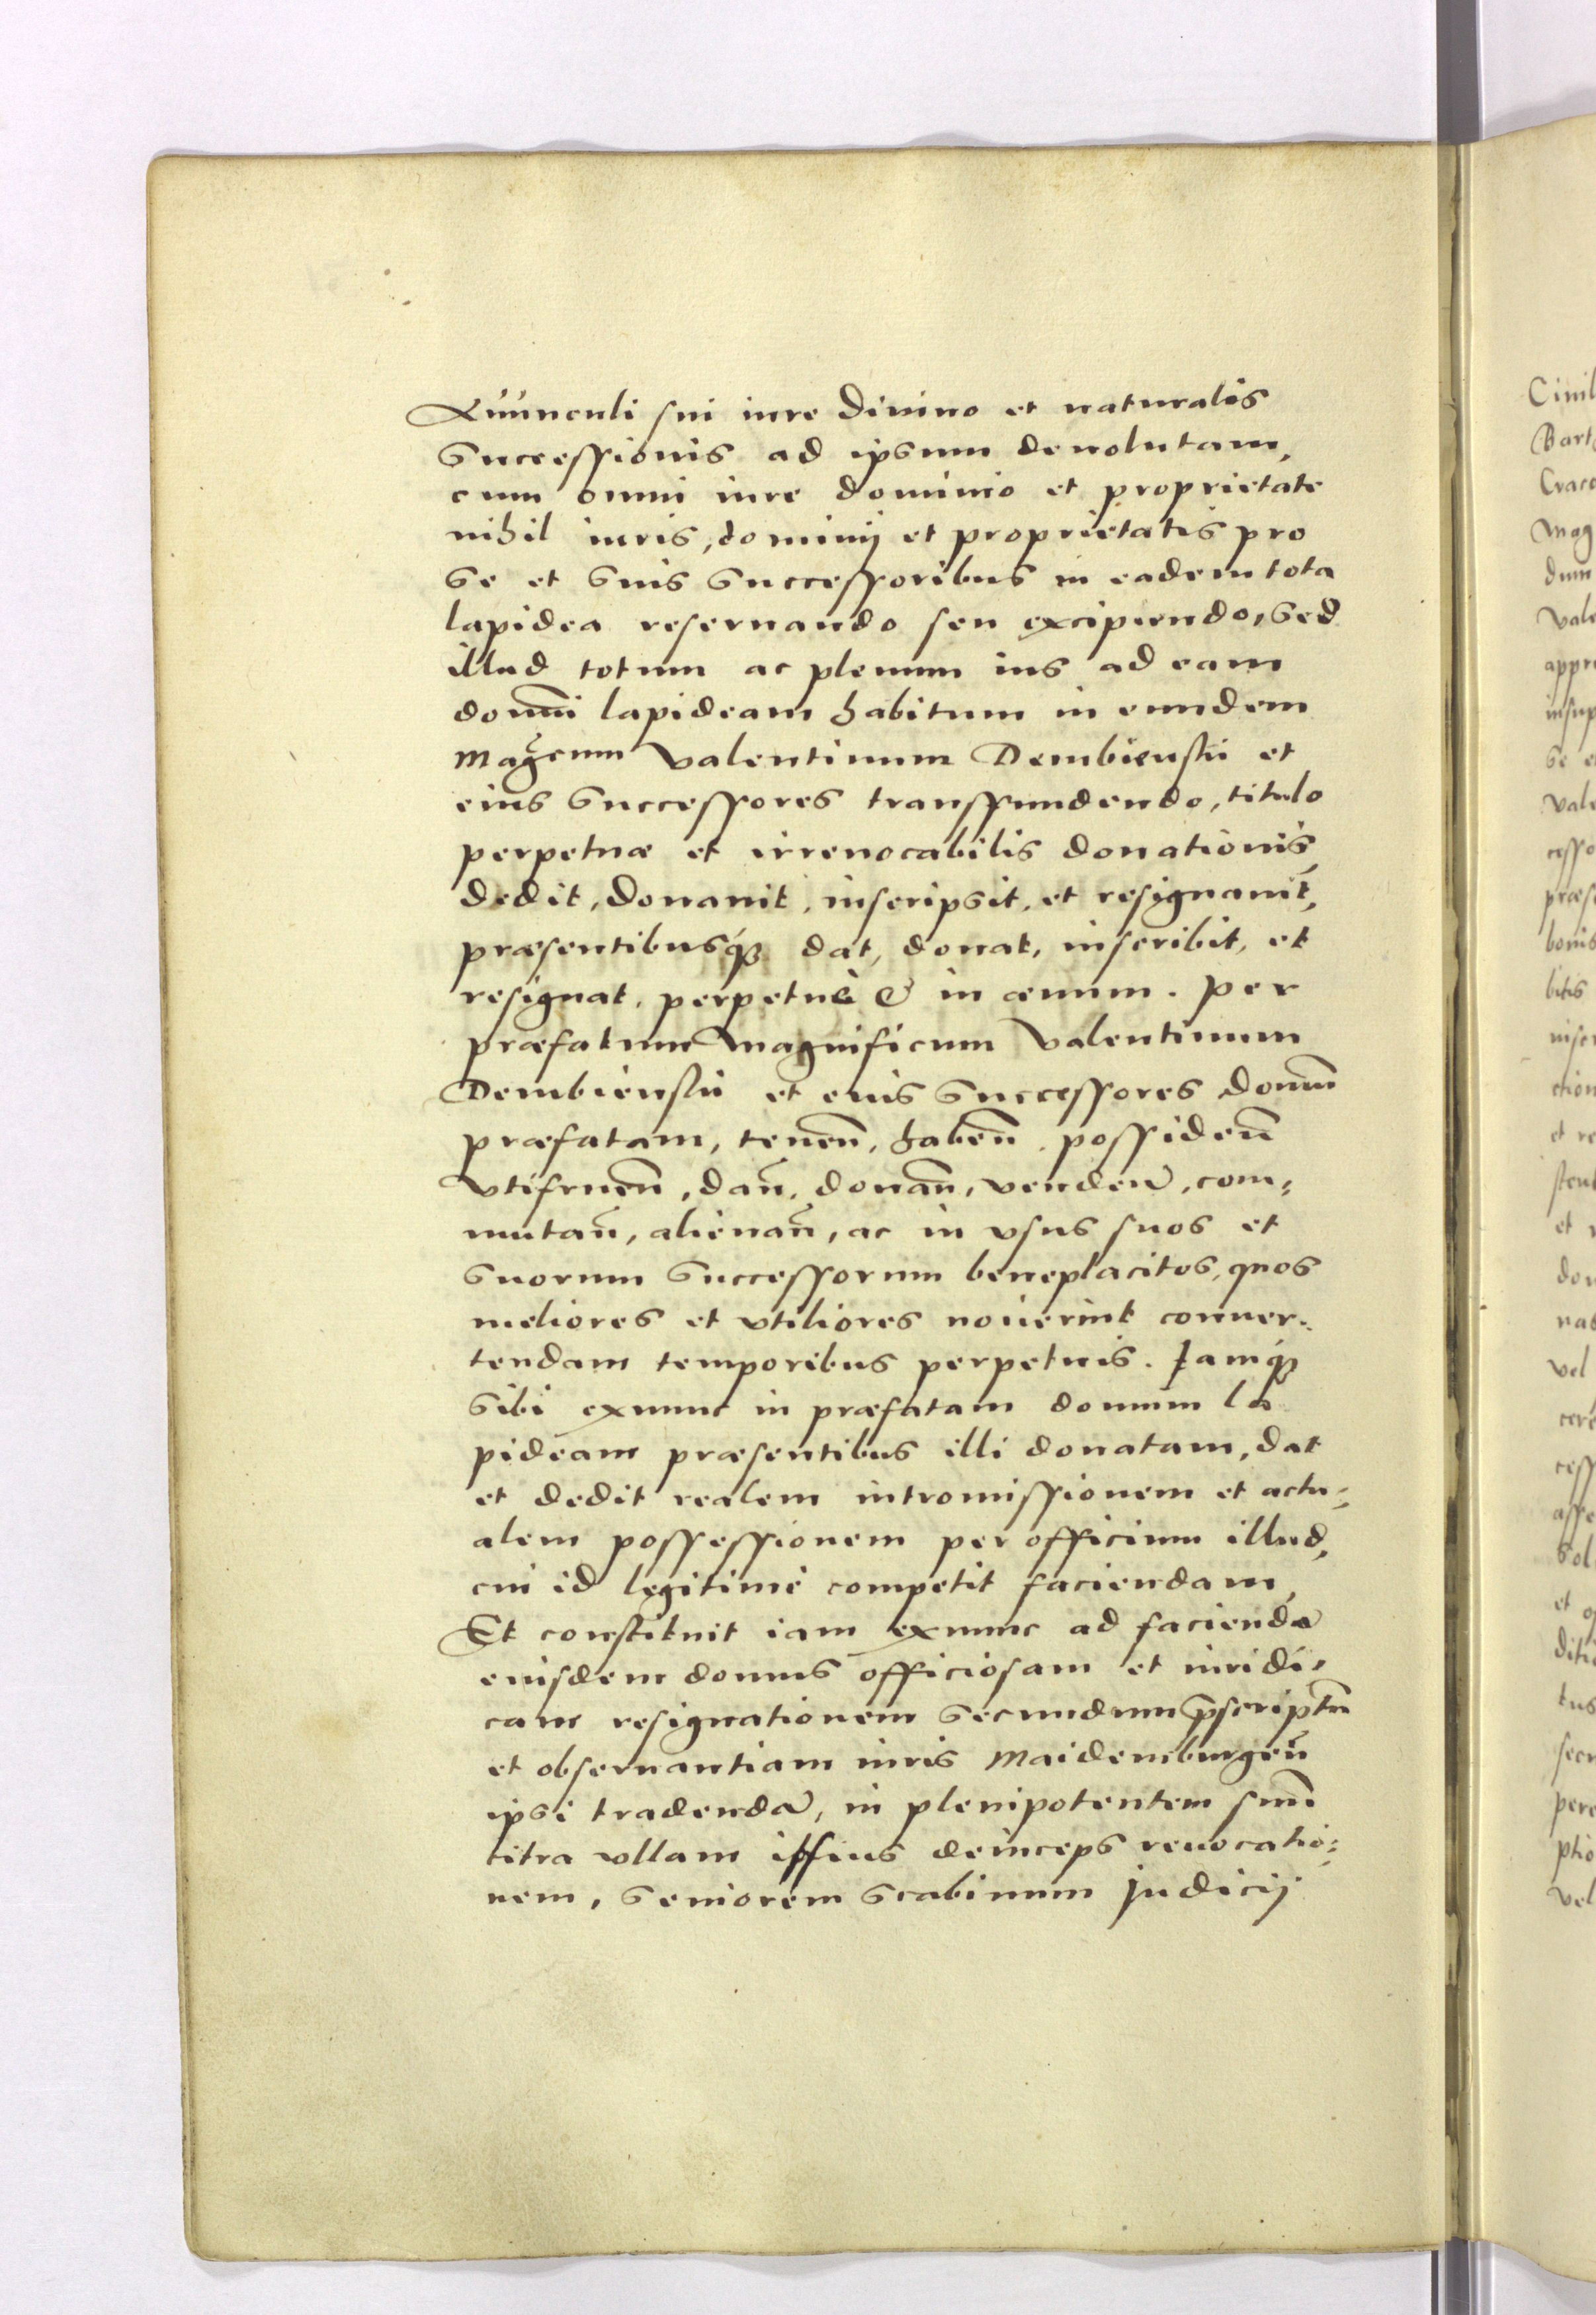 Auunculi sui iure Diuino et naturalis
Successionis ad ipsum deuolutam,
cum omni iure dominio et proprietate
nihil iuris, dominij et proprietatis pro
se et suis successoribus in eadem tota
lapidea reseruando seu excipiendo, sed
illud totum ac plenum ius ad eam
domū lapideam habitum in eundem
Mag̃cum Valentinum Dembienskii et
eius successores transfundendo, titulo
perpetuæ et irreuocabilis donationis,
dedit, donauit, inscripsit, et resignauit,
præsentibusq́ꝫ dat, donat, inscribit, et
resignat, perpetuè & in æuum. Per
præfatum Magnificum Valentinum
Dembienskii et eius successores domū
præfatam, teneñ, habeñ, possideñ
vtifrueñ, dañ, donañ, vendeñ, com=
mutañ, alienañ, ac in vsus suos et
suorum successorum beneplacitos, quos
meliores et vtiliores nouerint conuer=
tendam temporibus perpetuis. Iamq́ꝫ
sibi exnunc in præfatam domum la
pideam præsentibus illi donatam, dat
et dedit realem intromissionem et actu=
alem possessionem per officium illud,
cui id legitimè competit faciendam,
Et constituit iam exnunc ad faciendā
eiusdem domus officiosam et iuridi=
cam resignationem secundum p̄scriptū
et obseruantiam iuris Maidemburgeñ
ipsi tradendā, in plenipotentem suū
citra vllam ipsius deinceps reuocatio=
nem, seniorem scabinum Judicij